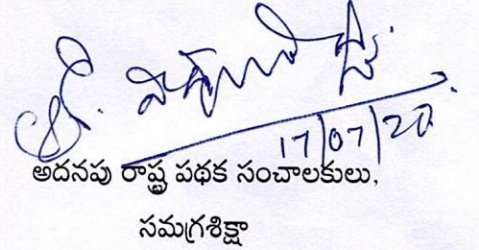 17/07/20
అదనపు రాష్ట్ర పథక సంచాలకులు,
సమగ్రశిక్షా